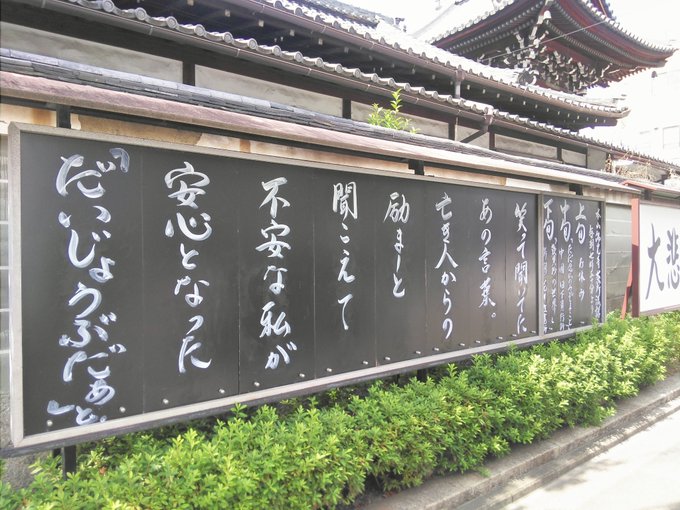 大悲
上旬 お休み
中旬
下旬
笑て聞てた
あの言葉。
亡き人からの
励ましと
聞こえて
不安な私が
安心となった
「だいじょうぶだぁと」